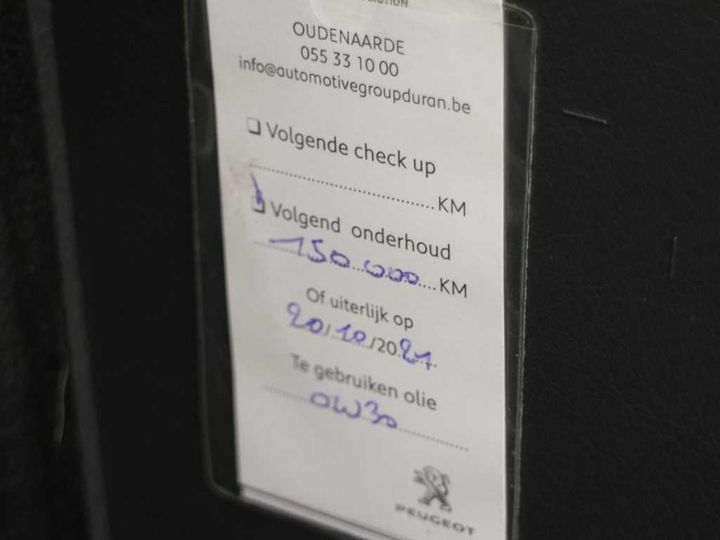 OUDENAARDE
055 33 10 00
info@automotivegroupduran.be
Volgende check up
KM
Volgend onderhoud
150.000 KM
Of uiterlijk op
20/10/2021
Te gebruiken olie
0W30
PEUGEOT